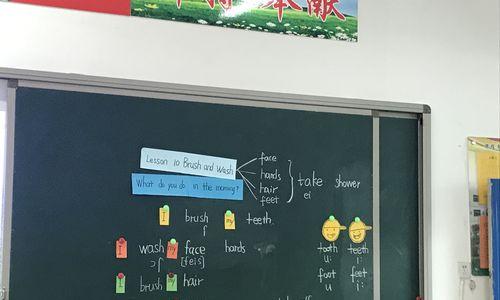 Lesson 10 Brush and Wash
face
hands
hair
feet
take shower
ei
What do you do in the morning?
I brush my teeth.
ʃ
I wash my face hands
ɔʃ [feis]
I brush my hair
tooth teeth
u: i:
foot feet
u i: